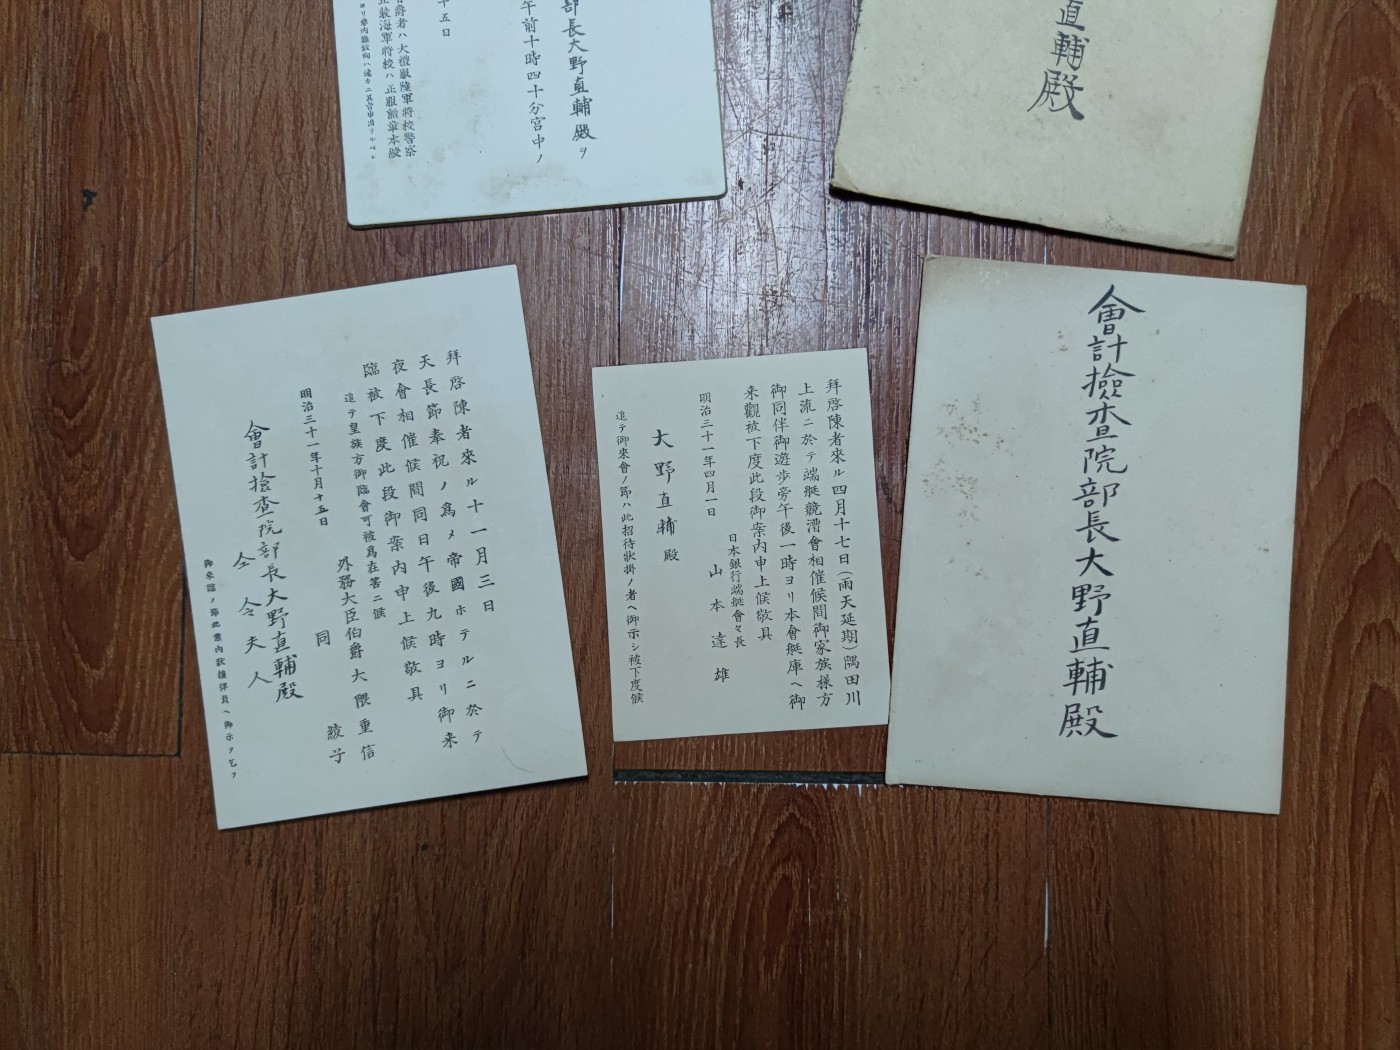 部長大野直輔殿ヲ
午前十時四十分宮中ノ
十五日
有爵者ハ大禮服陸軍将校警察
正裝海軍将校ハ正服勲章本綬
直輔殿
拜啓陳者來ル十一月三日
天長節奉祝ノ爲メ帝國ホテルニ於テ
夜會相催候間同日午後九時ヨリ御来
臨被下度此段御案内申上候敬具
追テ皇族方御臨會可被爲在筈ニ候
明治三十一年十月十五日
外務大臣伯爵大隈重信
同 綾子
會計檢査院部長大野直輔殿
仝 令夫人
御来臨ノ節此案内状接伴員ヘ御示ヲ乞フ
拜啓陳者來ル四月十七日(雨天延期)隅田川
上流ニ於テ端艇競漕會相催候間御家族樣方
御同伴御遊步旁午後一時ヨリ本會艇庫ヘ御
来觀被下度此段御案内申上候敬具
明治三十一年四月一日
日本銀行端艇會々長
山本達雄
大野直輔殿
追テ御來會ノ節ハ此招待狀掛ノ者ヘ御示シ被下度候
會計檢查院部長大野直輔殿